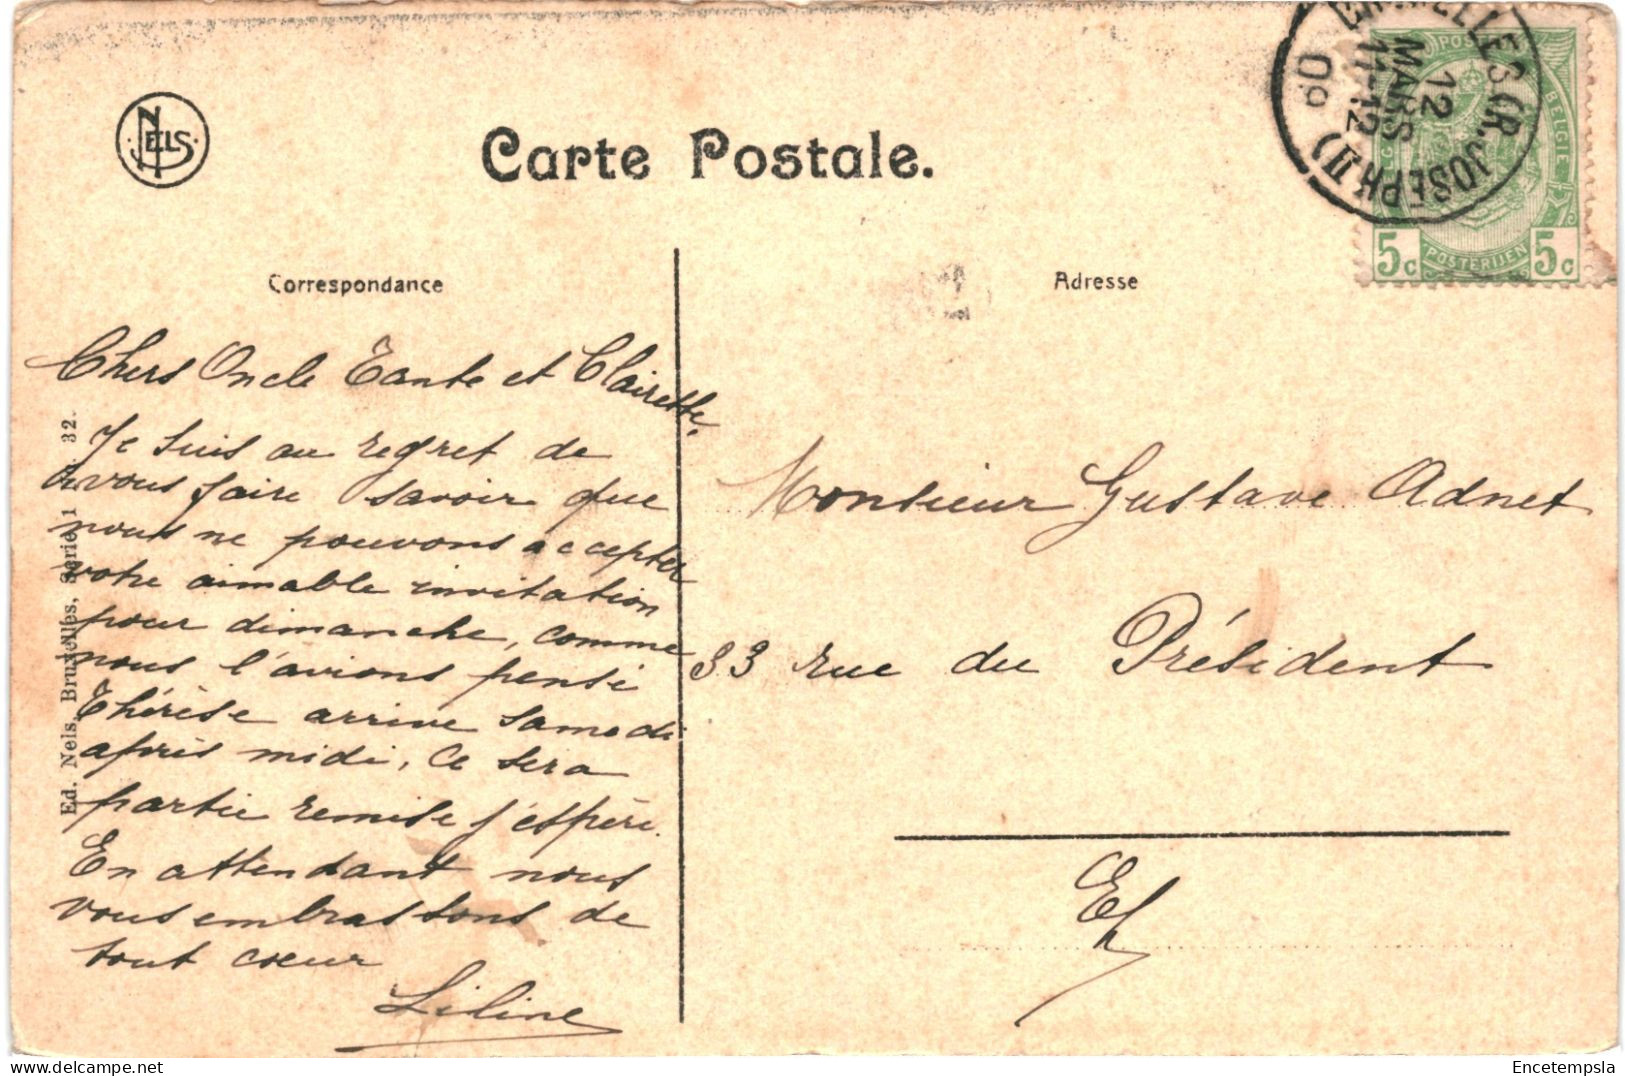 NELS
Carte Postale.
Correspondance
Adresse
BRUXELLES (R. JOSEPH. II)
12
MARS
11-12
09
BELGIE
POSTERIJEN
5c 5c
Chers Oncle Tante et Clairette,
Je suis au regret de
vous faire savoir que
nous ne pouvons accepter
votre aimable invitation
pour dimanche, comme
nous l'avions pensé
Thérèse arrive samedi
après midi, ce sera
partie remise j'espère.
En attendant nous
vous embrassons de
tout cœur
Liline
Ed. Nels, Bruxelles, Serie 1 32.
Monsieur Gustave Adnet
33 rue du Président
Encetempsla